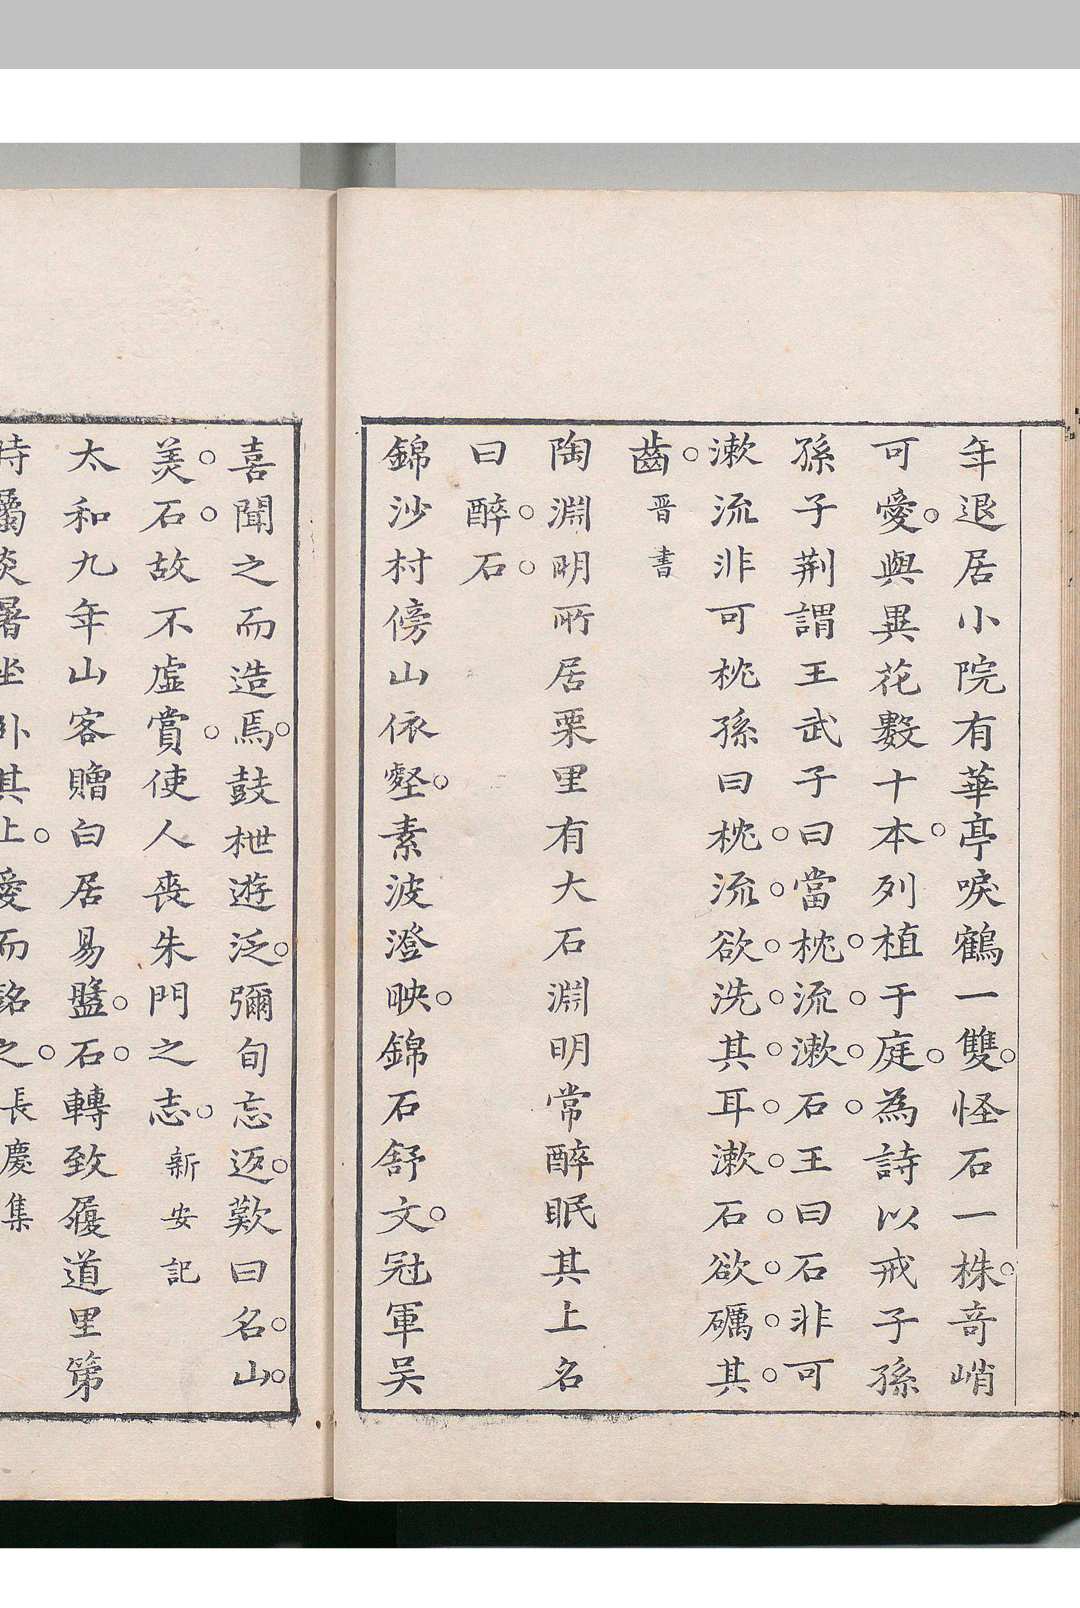 年退居小院有華亭唳鶴一雙怪石一株奇峭
可愛與異花數十本列植于庭為詩以戒子孫
孫子荆謂王武子曰當枕流漱石王曰石非可
漱流非可枕孫曰枕流欲洗其耳漱石欲礪其
齒晋書
陶淵明所居栗里有大石淵明常醉眠其上名
曰醉石
錦沙村傍山依壑素波澄映錦石舒文冠軍吴
喜聞之而造焉鼓枻遊泛彌旬忘返歎曰名山
美石故不虛賞使人喪朱門之志新安記
太和九年山客贈白居易盤石轉致履道里第
時屬炎暑坐卧其上愛而銘之長慶集